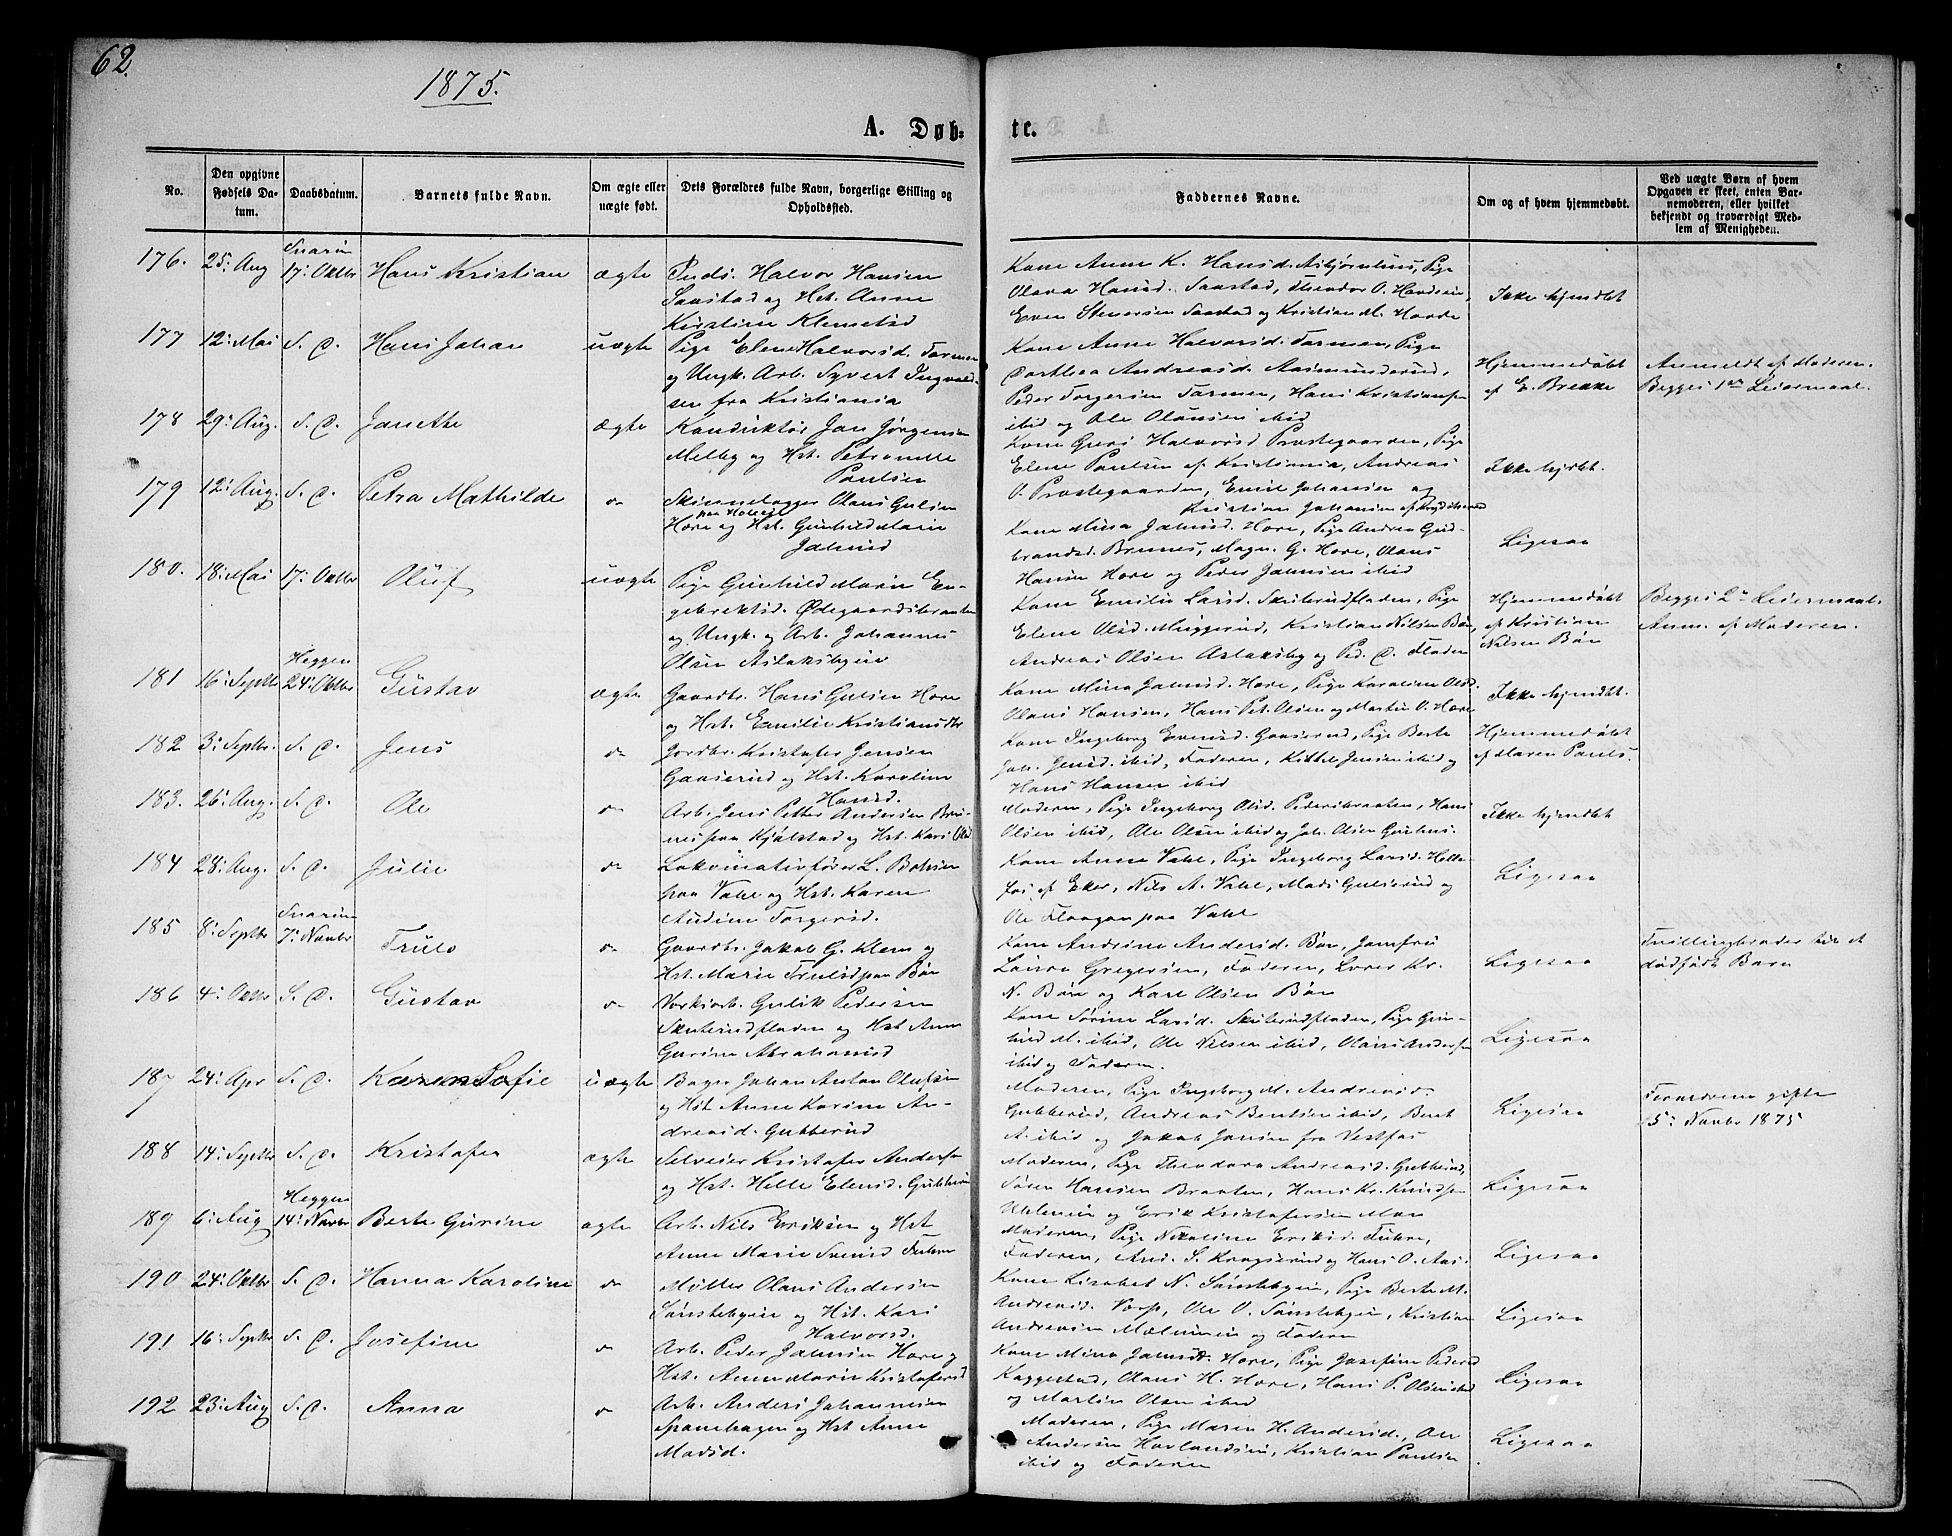 62.
1875.
A. Døb-
te.
No.
Den opgivne Fødsels Da-tum.
Daabsdatum.
Barnets fulde Navn.
Om ægte eller uægte født.
Dets Forældres fulde Navn, borgerlige Stilling og Opholdssted.
Faddernes Navne.
Om og af hvem hjemmedøbt.
Ved uægte Børn af hvem Opgaven er skeet, enten Bar-nemoderen, eller hvilket bekjendt og troværdigt Med-lem af Menigheden.
176. 25: Aug Snarum 17: Oktbr Hans Kristian ægte
Halvor Hansen
Saastad og Hst. Anne
Kirstine Klemetsd
Kone Anne K. Hansd. Asbjørnhus, Pige
Olava Hansd. Saastad, Theodor O. Hovde
Even Steversen Saastad og Kristian M. Hovde
Ikke hjemdbt
177 12: Mai S. D. Hans Johan uægte
Pige Elene Halvorsd. Formoen
og Ungk. Arb. Syvert Ingvald-
sen fra Kristiania
Kone Anne Halvorsd. Formoen, Pige
Dorthea Andreasd. Aasmunderud,
Peder Torgersen Formoen, Hans Kristiansen
ibid og Ole Olausen ibid
Hjemmedøbt
af E. Brekke
Anmeldt af Moderen.
Begges 1ste Leiermaal.
178 29: Aug. S. D. Janette ægte
Konduktør Jan Jørgensen
Melby og Hst. Petronelle
Paulsen
Kone Guro Halvorsd Præstegaarden, Pige
Elene Paulsen af Kristiania, Andreas
O. Præstegaarden, Emil Johansen og
Kristian Johansen
Ikke hjdbt.
179 12: Aug. S. D. Petra Mathilde do
Olaus Gulsen
Hovre og Hst. Gunhild Marie
Johnsd
Kone Mina Johnsd. Hovre, Pige Andrea Gud-
brandsd. Brunes, Magn. G. Hovre, Olaus
Hansen Hovre og Peder Johnsen ibid
Ligesaa
180. 18: Mai 17: Oktbr Oluf uægte
Pige Gunhild Marie En-
gebrektsd. Ødegaardsbraaten
og Ungk. og Arb. Johannes
Olsen Aslaksbyeie
Kone Emilie Larsd. Skuterudfladen, Pige
Elene Olsd. Muggerud, Kristian Nilsen Bøn,
Andreas Olsen Aslaksby og Ped. C. Floden
Hjemmedøbt
af Kristian
Nilsen Bøn
Begges 2det Leiermaal.
Anm. af Moderen.
181 16: Septbr Heggen 24: Oktbr Gustav ægte
Gaardbr. Hans Gulsen Hovre
og Hst. Emilie Kristiansdtr
Kone Mina Johnsd. Hovre, Pige Karoline Olsd.
Olaus Hansen, Hans Pet. Olsen og Martin O. Hovre
Ikke hjemdbt.
182 3: Septbr. S. D. Jens do
Jordbr. Kristofer Jensen
Gaaserud og Hst. Karoline
Hansd.
Kone Ingeborg Evensd. Gaaserud, Pige Berte
Joh. Jensd. ibid, Faderen, Kittel Jensen ibid og
Hans Hansen ibid
Hjemmedøbt
af Maren Pauls.
183. 26: Aug. S. D. Ole do
Arb. Jens Petter Andersen Bru-
nes paa Kjølstad og Hst. Kari Olsd
Moderen, Pige Ingeborg Olsd. Pedersbraaten, Hans
Olsen ibid, Ole Olsen ibid og Joh. Olsen Gunhus.
Ikke hjemdbt
184 28: Aug. S. D. Julie do
Lokomotivfører L. Bohsen
paa Vahl og Hst. Karen
Andine Torgersd.
Kone Anne Vahl, Pige Ingeborg Larsd. Helle-
fos af Eker, Nils A. Vahl, Mads Gulserud og
Ole Floagan paa Vahl
Ligesaa
185 8: Septbr Snarum 7: Novbr Truls do
Gaardbr. Jakob G. Klem og
Hst. Marie Trulsd paa Bøn
Kone Andrine Andersd. Bøn, Jomfru
Laura Gregersen, Faderen, Lover Kr.
N. Bøn og Karl Olsen Bøn
Ligesaa
Tvillingbroder til et
dødfødt Barn
186 4: Oktbr S. D. Gustav do
Gulik Pedersen
Skuterudfladen og Hst Anne
Gurine Abrahamsd
Kone Sørine Larsd. Skuterudfladen, Pige Gun-
hild M. ibid, Ole Nilsen ibid, Olaus Andersen
ibid og Faderen.
Ligesaa
187 24: Apr S. D. Karen Sofie uægte
Bager Johan Anton Olufsen
og Hst Anne Karine An-
dreasd. Gubberud
Moderen, Pige Ingeborg M. Andreasd.
Gubberud, Andreas Bentsen ibid, Bent
A. ibid og Jakob Jansen fra Vestfos
Ligesaa
Forældrene gifte
5: Novbr 1875
188 14: Septbr S. D. Kristofer ægte
Selveier Kristofer Anders.
og Hst. Helle Elensd. Gubberud
Moderen, Pige Theodora Andreasd. Gubberud,
Søren Hansen Braaten, Hans Kr. Knudsen
og Erik Kristofersen Moen
Ligesaa
189 6: Aug Heggen 14: Novbr Berte Gurine ægte
Arb. Nils Eriksen og Hst
Anne Marie Svensd Furhre
Moderen, Pige Nikoline Eriksd. Fuhre,
Faderen, And. S. Kragserud og Hans O. Aas.
Ligesaa
190 24: Oktbr S. D. Hanna Karoline do
Møller Olaus Andersen
Sønstebyeie og Hst. Kari
Halvorsd.
Kone Lisabet N. Sønstebyeie, Pige Berte M.
Andreasd. Vorp, Ole O. Sønstebyeie, Kristian
Andreasen Mælumeie og Faderen
Ligesaa
191 16: Septbr S. D. Josefine do
Arb. Peder Johnsen Hovre og
Hst. Anne Marie Kristofersd
Kone Mina Johnsdt. Hovre, Pige Josefine Pedersd
Kaggestad, Olaus H. Hovre, Hans P. Olsen ibid
og Martin Olsen ibid
Ligesaa
192 23: Aug S. D. Anna do
Arb. Anders Johannesen
Sponehagen og Hst Anne
Madsd.
Moderen, Pige Maren H. Andersd., Ole
Andersen Hovlandseie, Kristian Paulsen
ibid og Faderen
Ligesaa